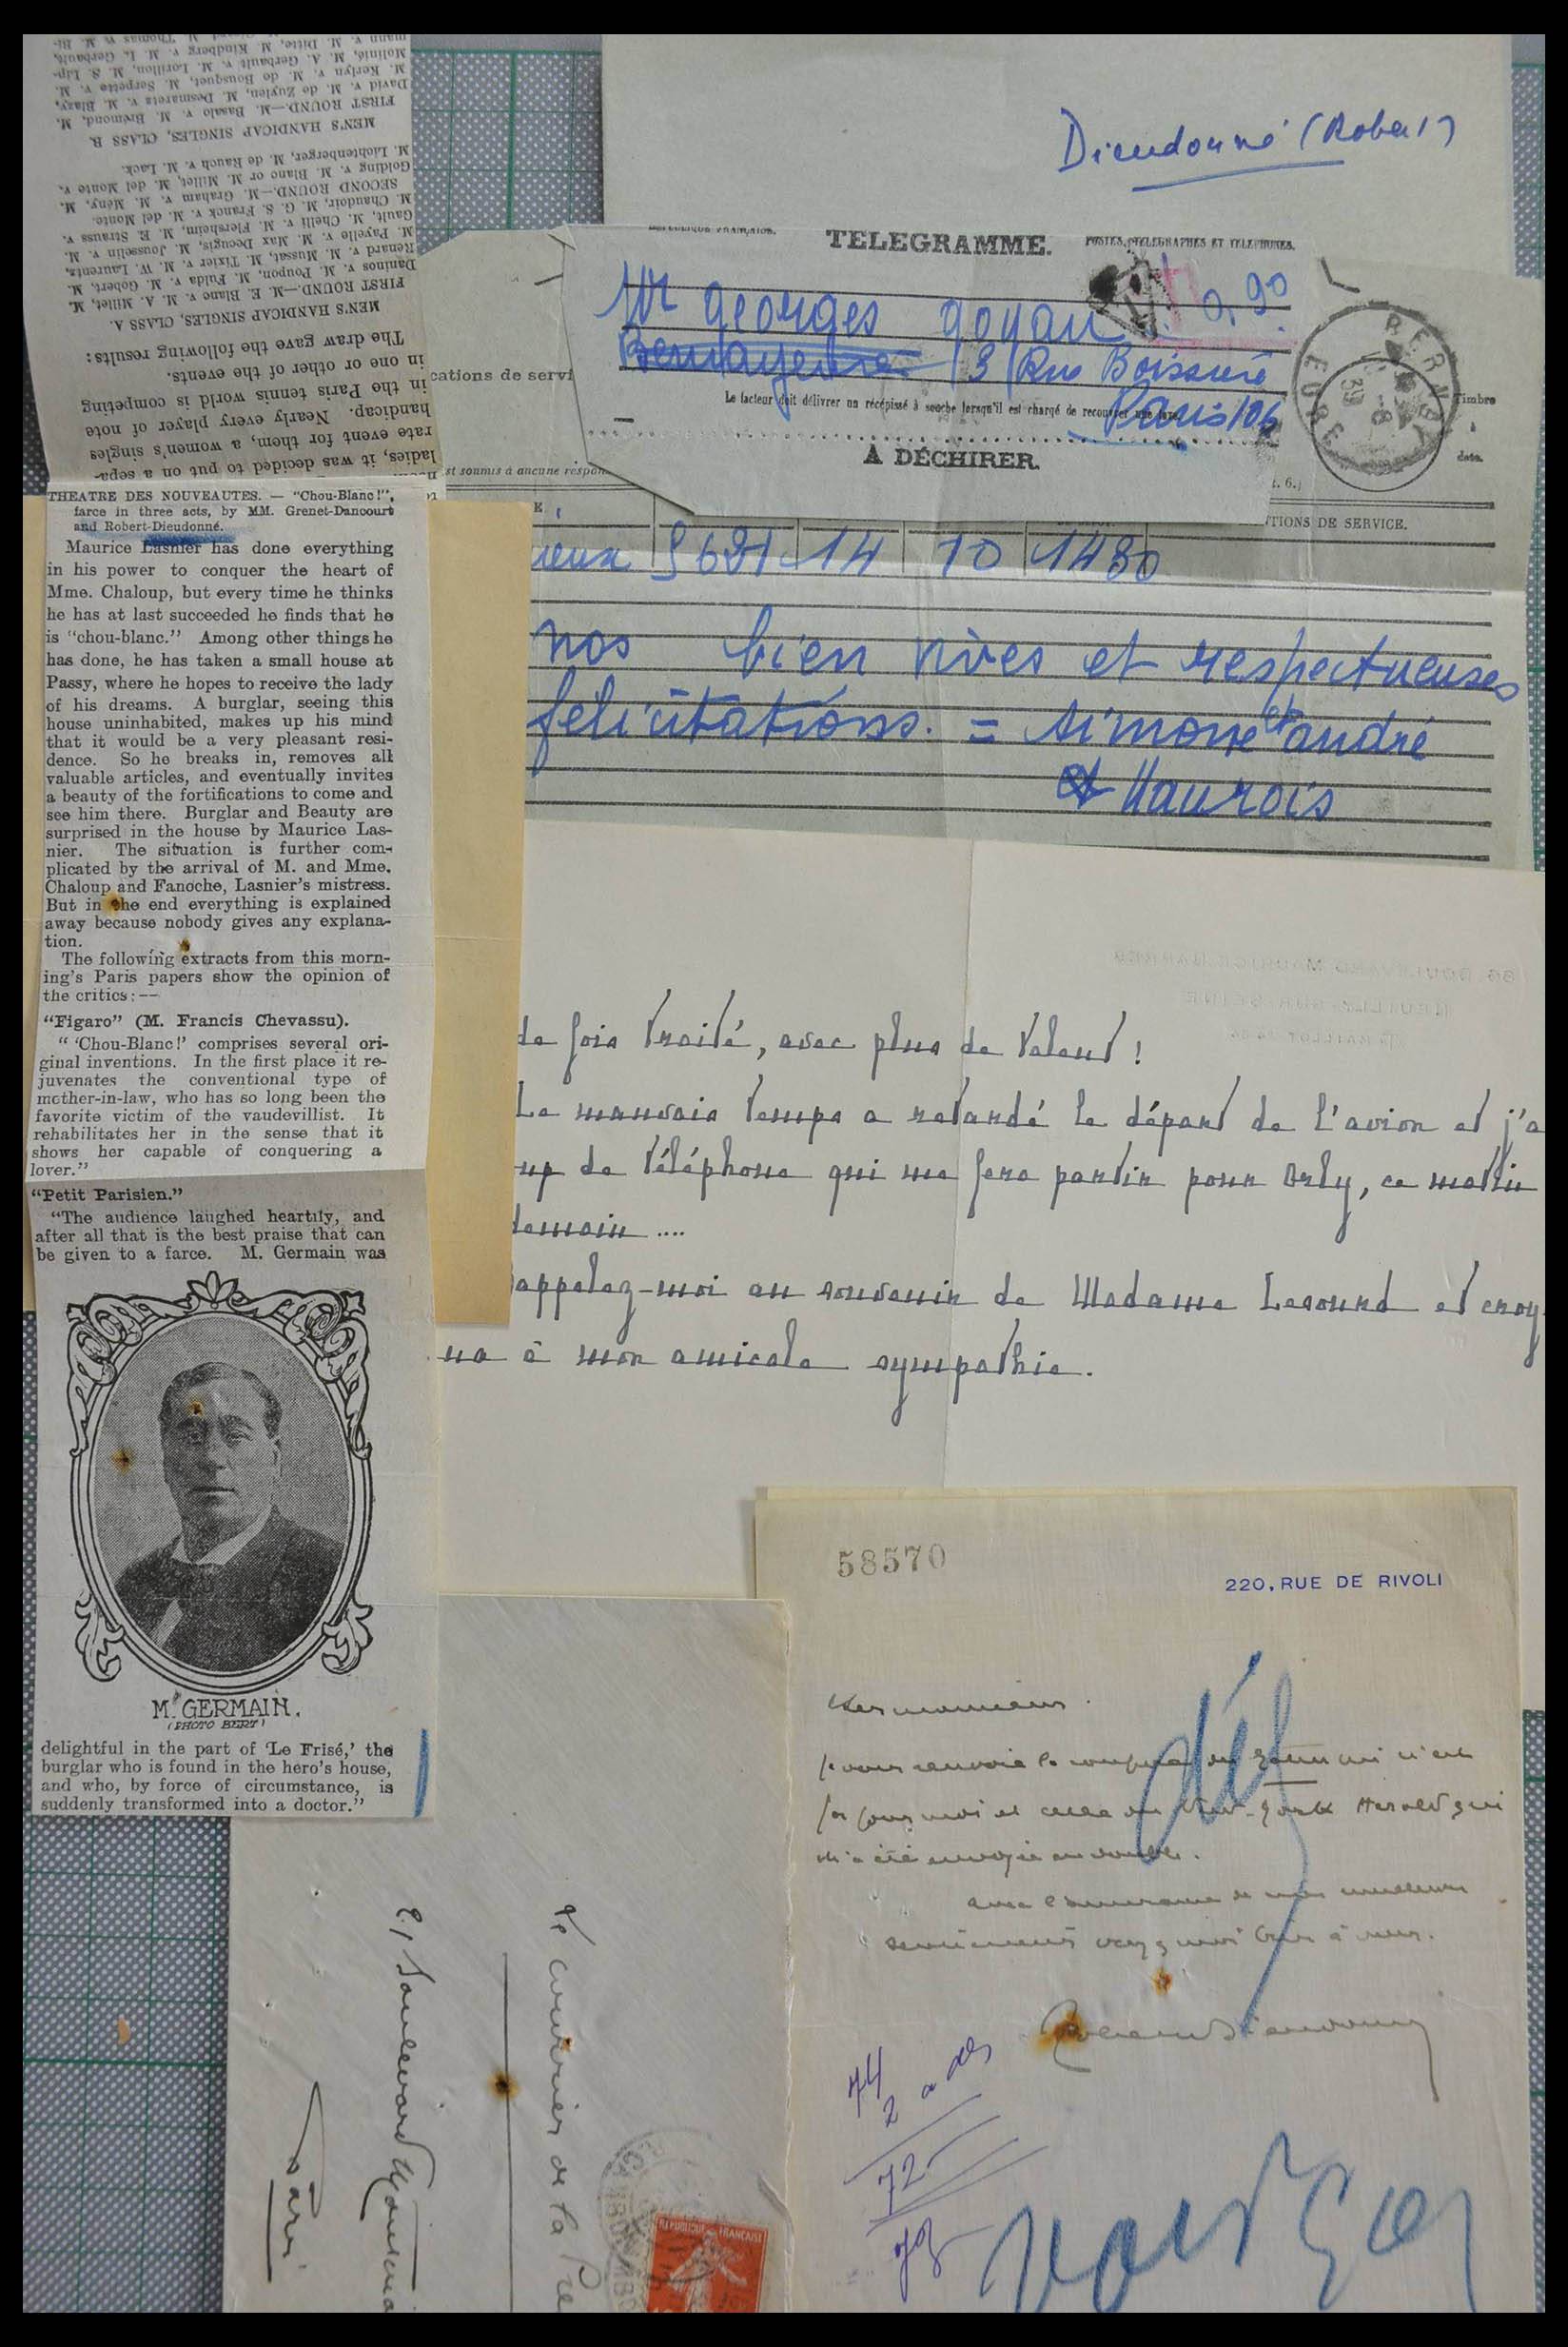 Dieudonné (Robert)
TELEGRAMME.
POSTES, TELEGRAPHES ET TELEPHONES.
Mr georges goyau 0,90
13 Rue Boissière
Le facteur doit délivrer un récépissé à souche lorsqu'il est chargé de recouvrer une taxe.
Paris 106
À DÉCHIRER.
BERNAY
EURE
Timbre
à
date.
cations de servi
st soumis à aucune respon
TIONS DE SERVICE.
14 10 1430
nos bien vives et respectueuses
félicitations. = simone et andré
Maurois
ladies, it was decided to put on a sepa-
rate event for them, a women's singles
handicap. Nearly every player of note
in the Paris tennis world is competing
in one or other of the events.
The draw gave the following results:
MEN'S HANDICAP SINGLES, CLASS A.
FIRST ROUND.—M. E. Blanc v. M. A. Millet, M.
Daninos v. M. Poupon, M. Fulda v. M. Gobert, M.
Renard v. M. Mussat, M. Tixier v. M. W. Laurentz,
M. Payelle v. M. Max Decugis, M. Jousselin v. M.
Gault, M. Chelli v. M. Flersheim, M. E. Strauss v.
M. Chaudoir, M. G. S. Franck v. M. del Monte.
SECOND ROUND.—M. Graham v. M. Mény, M.
Golding v. M. Blanc or M. Millet, M. del Monte v.
M. Lichtenberger, M. de Rauch v. M. Lack.
MEN'S HANDICAP SINGLES, CLASS B.
FIRST ROUND.—M. Basalo v. M. Brémond, M.
David v. M. de Zuylen, M. Desmarets v. M. Blazy,
M. Kerlyn v. M. de Bousquet, M. Serpette v. M.
Molinié, M. A. Gerbault v. M. Lorillon, M. S. Lip-
mann v. M. Ditte, M. Kindberg v. M. L. Gerbault,
THEATRE DES NOUVEAUTES. — "Chou-Blanc!",
farce in three acts, by MM. Grenet-Dancourt
and Robert-Dieudonné.
Maurice Lasnier has done everything
in his power to conquer the heart of
Mme. Chaloup, but every time he thinks
he has at last succeeded he finds that he
is "chou-blanc." Among other things he
has done, he has taken a small house at
Passy, where he hopes to receive the lady
of his dreams. A burglar, seeing this
house uninhabited, makes up his mind
that it would be a very pleasant resi-
dence. So he breaks in, removes all
valuable articles, and eventually invites
a beauty of the fortifications to come and
see him there. Burglar and Beauty are
surprised in the house by Maurice Las-
nier. The situation is further com-
plicated by the arrival of M. and Mme.
Chaloup and Fanoche, Lasnier's mistress.
But in the end everything is explained
away because nobody gives any explana-
tion.
The following extracts from this morn-
ing's Paris papers show the opinion of
the critics:—
"Figaro" (M. Francis Chevassu).
"'Chou-Blanc!' comprises several ori-
ginal inventions. In the first place it re-
juvenates the conventional type of
mother-in-law, who has so long been the
favorite victim of the vaudevillist. It
rehabilitates her in the sense that it
shows her capable of conquering a
lover."
"Petit Parisien."
"The audience laughed heartily, and
after all that is the best praise that can
be given to a farce. M. Germain was
M. GERMAIN.
(PHOTO BERT)
delightful in the part of 'Le Frisé,' the
burglar who is found in the hero's house,
and who, by force of circumstance, is
suddenly transformed into a doctor."
de fois traité, avec plus de talent !
Le mauvais temps a retardé le départ de l'avion et j'a
up de téléphone qui me fera partir pour Orly, ce matin
demain ....
appelez-moi au souvenir de Madame Lesourd et croy
à mon amicale sympathie.
58570
220, RUE DE RIVOLI
Je vous renvoie la coupure du qui n'est
pas pour moi et celle du New-York Herald qui
m'a été envoyée en double.
avec l'assurance de mes meilleurs
sentiments
Robert Dieudonné
74
2
72
73
Courrier de la Pre
21 Boulevard Montma
Paris
REPUBLIQUE FRANÇAISE